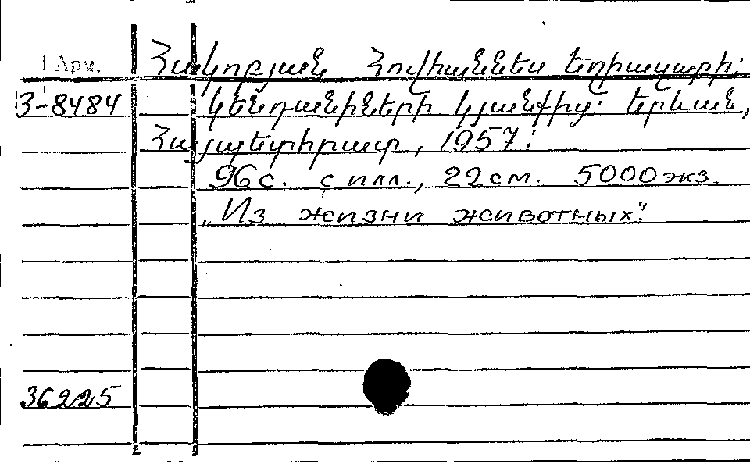 Арм.
Հակոբյան Հովհաննես Եղիազարի:
3-8484
Կենդանիների կյանքից: Երևան,
Հայպետհրատ, 1957:
96 с. с илл., 22 см. 5000 экз.
„Из жизни животных".
36225